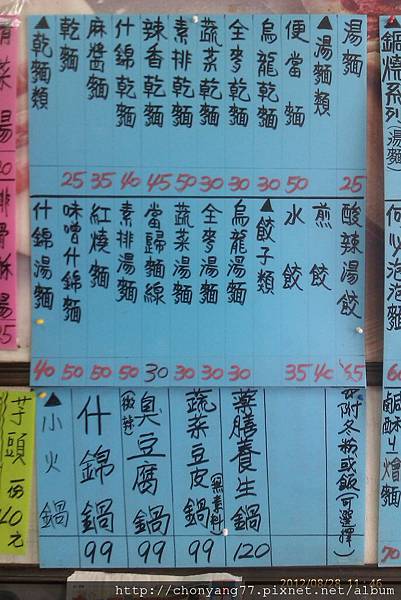 ▲乾麵類
乾麵 25
麻醬麵 35
什錦乾麵 40
辣香乾麵 45
素排乾麵 50
蔬菜乾麵 30
全麥乾麵 30
烏龍乾麵 30
便當麵 50
▲湯麵類
湯麵 25
什錦湯麵 40
味噌什錦麵 50
紅燒麵 50
素排湯麵 50
當歸麵線 30
蔬菜湯麵 30
全麥湯麵 30
烏龍湯麵 30
▲餃子類
水餃 35
煎餃 40
酸辣湯餃 45
▲小火鍋
什錦鍋 99
臭豆腐鍋(微辣) 99
蔬菜豆皮鍋(無素料) 99
藥膳養生鍋 120
附冬粉或飯(可選擇)
菜湯 20
排骨酥湯
芋頭 份40元
鍋燒系列(湯麵)
何必泡泡麵
燴麵 70
2012/08/28 11:46
http://chonyang77.pixnet.net/album